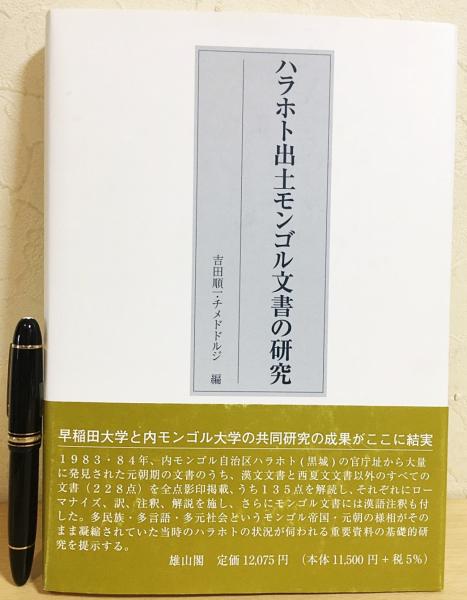 ハラホト出土モンゴル文書の研究
吉田順一・チメドドルジ 編
早稲田大学と内モンゴル大学の共同研究の成果がここに結実
1983・84年、内モンゴル自治区ハラホト(黒城)の官庁址から大量
に発見された元朝期の文書のうち、漢文文書と西夏文文書以外のすべての
文書(228点)を全点影印掲載、うち135点を解読し、それぞれにロー
マナイズ、訳、注釈、解説を施し、さらにモンゴル文書には漢語注釈も付
した。多民族・多言語・多元社会というモンゴル帝国・元朝の様相がその
まま凝縮されていた当時のハラホトの状況が伺われる重要資料の基礎的研
究を提示する。
雄山閣 定価 12,075円 (本体11,500円+税5%)